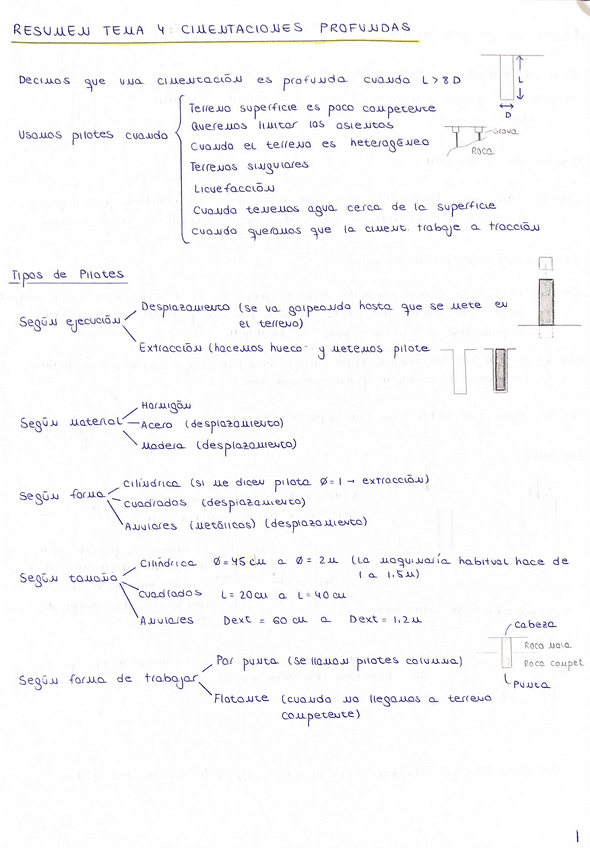 RESUMEN TEMA 4: CIMENTACIONES PROFUNDAS
Decimos que una cimentación es profunda cuando L > 8 D
L
D
Usamos pilotes cuando
Terreno superficie es poco competente
Queremos limitar los asientos
Cuando el terreno es heterogéneo
Grava
Roca
Terrenos singulares
Licuefacción
Cuando tenemos agua cerca de la superficie
Cuando queramos que la ciment. trabaje a tracción
Tipos de Pilotes
Según ejecución
Desplazamiento (se va golpeando hasta que se mete en
el terreno)
Extracción (hacemos hueco y metemos pilote
Según material
Hormigón
Acero (desplazamiento)
Madera (desplazamiento)
Según forma
Cilíndrica (si me dicen pilote Ø=1 → extracción)
Cuadrados (desplazamiento)
Anulares (metálicos) (desplazamiento)
Según tamaño
Cilíndrica Ø=45cm a Ø=2m (La maquinaría habitual hace de
1 a 1.5m)
Cuadrados L=20cm a L=40cm
Anulares Dext = 60 cm a Dext = 1.2m
Según forma de trabajar
Por punta (se llaman pilotes columna)
Flotante (cuando no llegamos a terreno
competente)
Cabeza
Roca mala
Roca compet
Punta
1